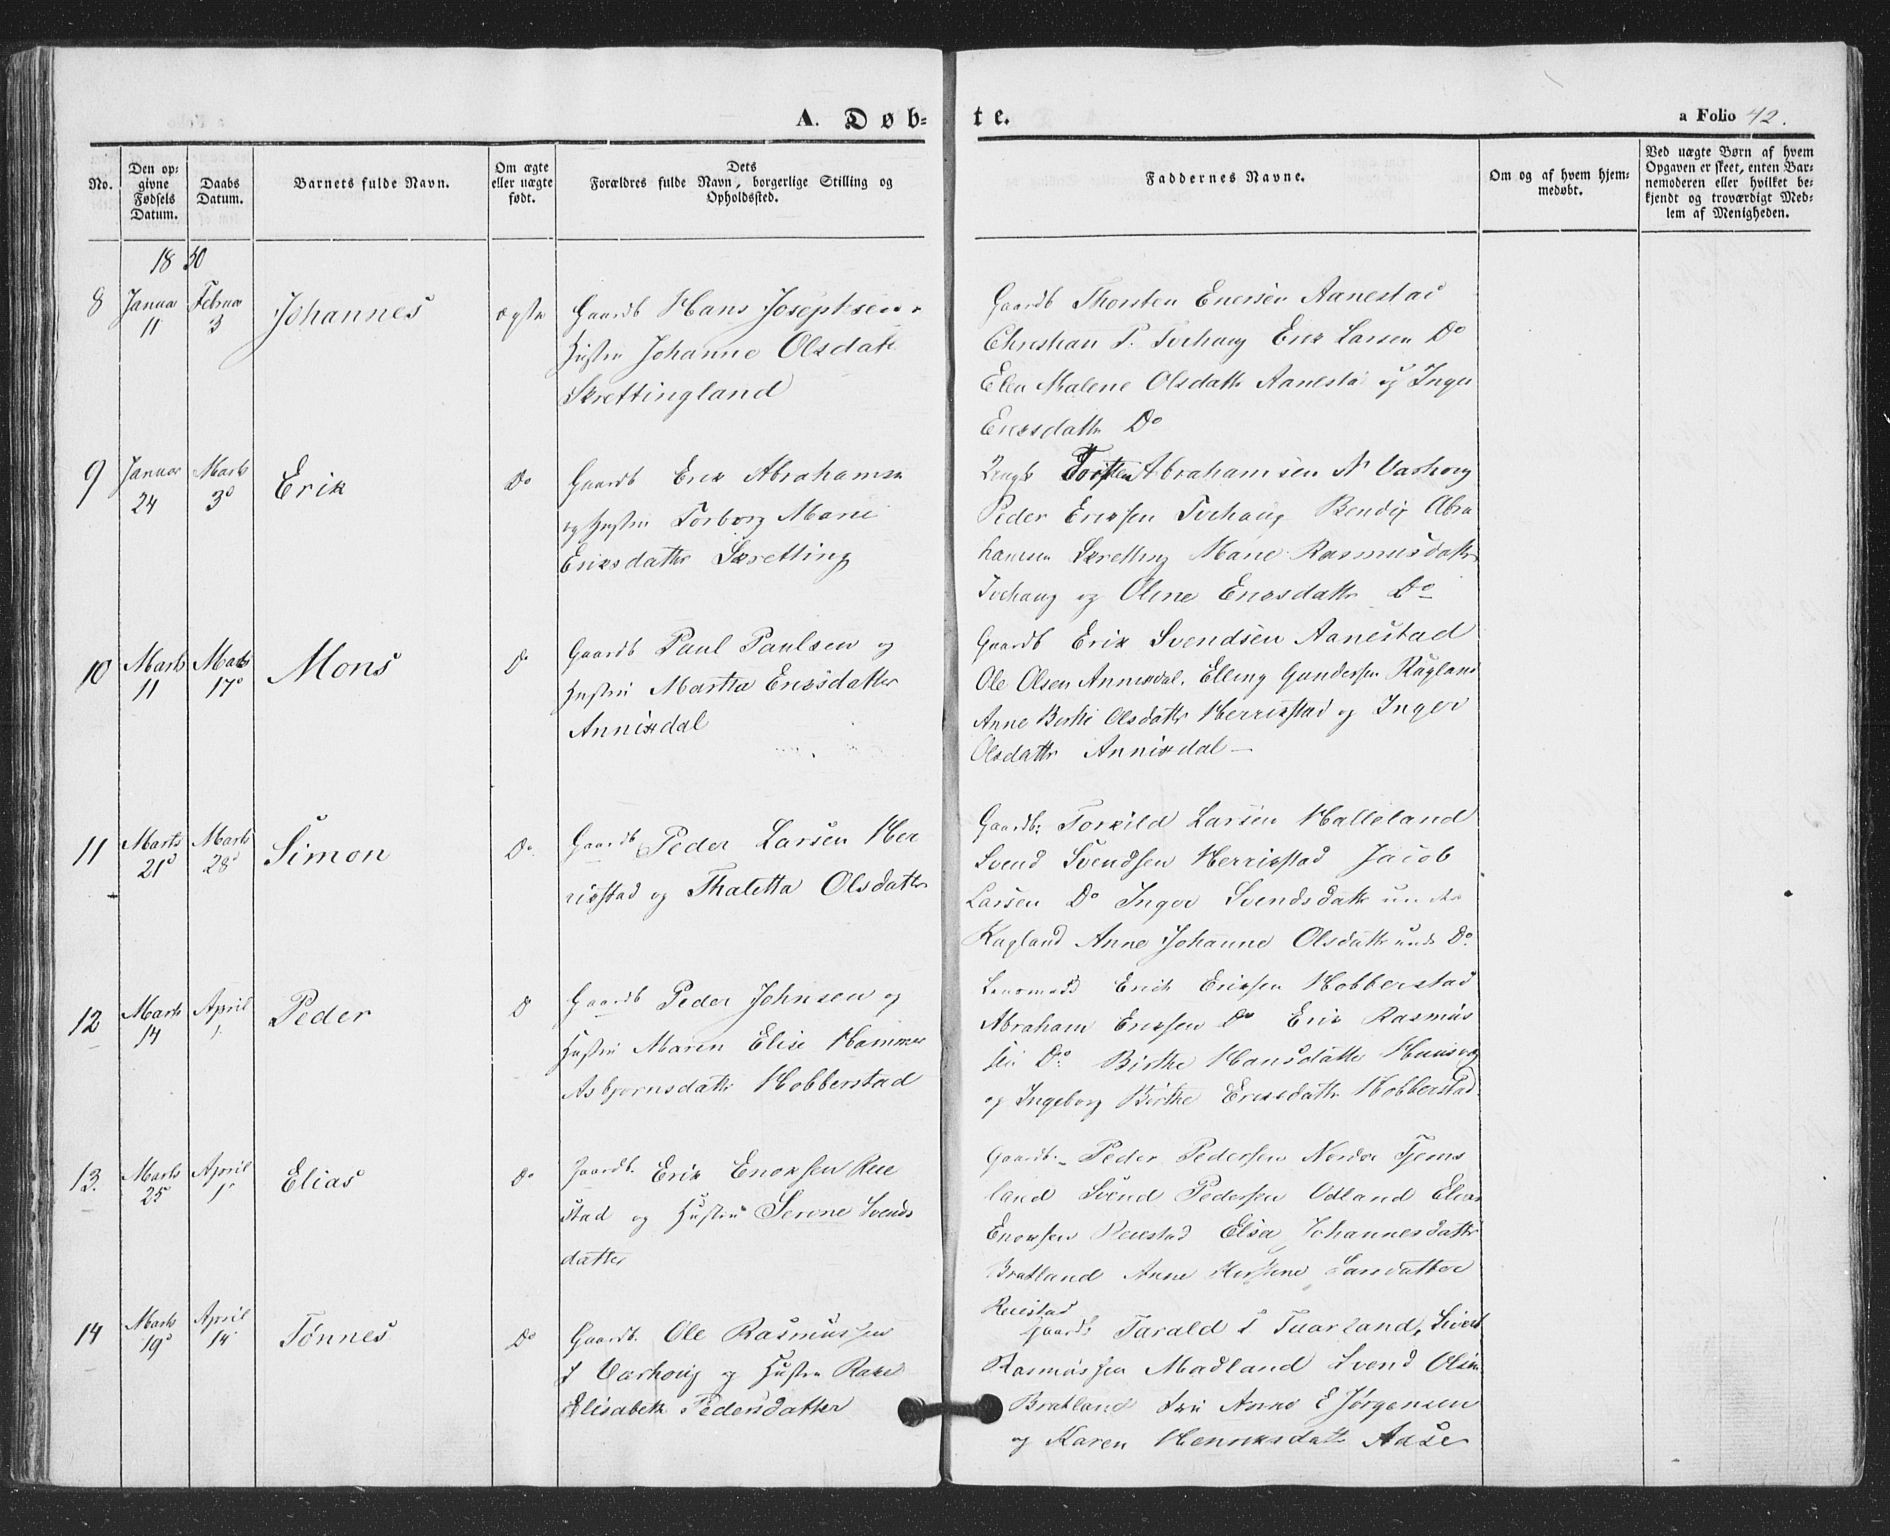 A. Døb=
te.
a Folio 42.
No.
Den op=
givne
Fødsels
Datum.
Daabs
Datum.
Barnets fulde Navn.
Om ægte
eller uægte
født.
Dets
Forældres fulde Navn, borgerlige Stilling og
Opholdssted.
Faddernes Navne.
Om og af hvem hjem=
medøbt.
Ved uægte Børn af hvem
Opgaven er skeet, enten Bar=
nemoderen eller hvilket be=
kjendt og troværdigt Med=
lem af Menigheden.
1850
8
Januar
11
Februar
3
Johannes
ægte
Gaardb Hans Josephsen
Hustru Johanne Olsdatt
Skrettingland
Gaardb Thorsten Enersen Aanestad
Christian P. Tvehaug Erik Larsen Do
Malene Olsdattr Aanesta og Inger
Ericsdattr Do
9
Januar
24
Marts
3d
Erik
Do
Gaardb Erik Abrahamsen
og Hustru Torborg Marie
Eriksdatter Skretting
Torsten Abrahamsen N Varhoug
Peder Eriksen Tvehaug Bendix Abra
hamsen Skretting Marie Rasmusdattr
Tvehaug og Oline Ericsdattr Do
10
Marts
11
Marts
17d
Mons
Do
Gaardb Paul Paulsen og
Hustru Martha Ericsdatter
Annixdal
Gaardb Erik Svendsen Aanestad
Ole Olsen Annixdal. Elling Gundersen Kagland
Anne Berthe Olsdattr Herrikstad og Inger
Olsdattr Annixdal —
11
Marts
21d
Marts
28d
Simon
Do
Gaardb Peder Larsen Her
rikstad og Thaletta Olsdattr
Gaardb: Torkild Larsen Halleland
Svend Svendsen Herrikstad Jacob
Larsen Do Inger Svendsdattr under
Kagland Anne Johanne Olsdattr und Do
12
Marts
14
April
1
Peder
Do
Gaardb Peder Johnsen og
Hustru Maren Elise Hammer
Asbjornsdattr Hobberstad
Lensmand Erich Eriksen Hobberstad
Abraham Eriksen Do Erik Rasmus
sen Do Birthe Hansdatter
og Ingeborg Birthe Ericsdattr Hobberstad
13.
Marts
25
April
1
Elias
Do
Gaardb. Erik Enoksen Reie
stad og Hustru Serine Svends
datter
Gaardb. Peder Pedersen Nordre Tjems
land Svend Pedersen Odland Elias
Enoksen Reiestad Elsa Johannesdattr
Bratland Anne Kirstine Larsdatter
Reiestad
14
Marts
19d
April
14
Tønnes
Do
Gaardb. Ole Rasmussen
I Varhoug og Hustru Rakel
Elisabeth Pedersdatter
Gaardb Tarald T Tuarland, Sivert
Rasmussen Madland Svend Olsen
Bratland Fru Anne E Jørgensen
og Karen Henriksdatt Adse